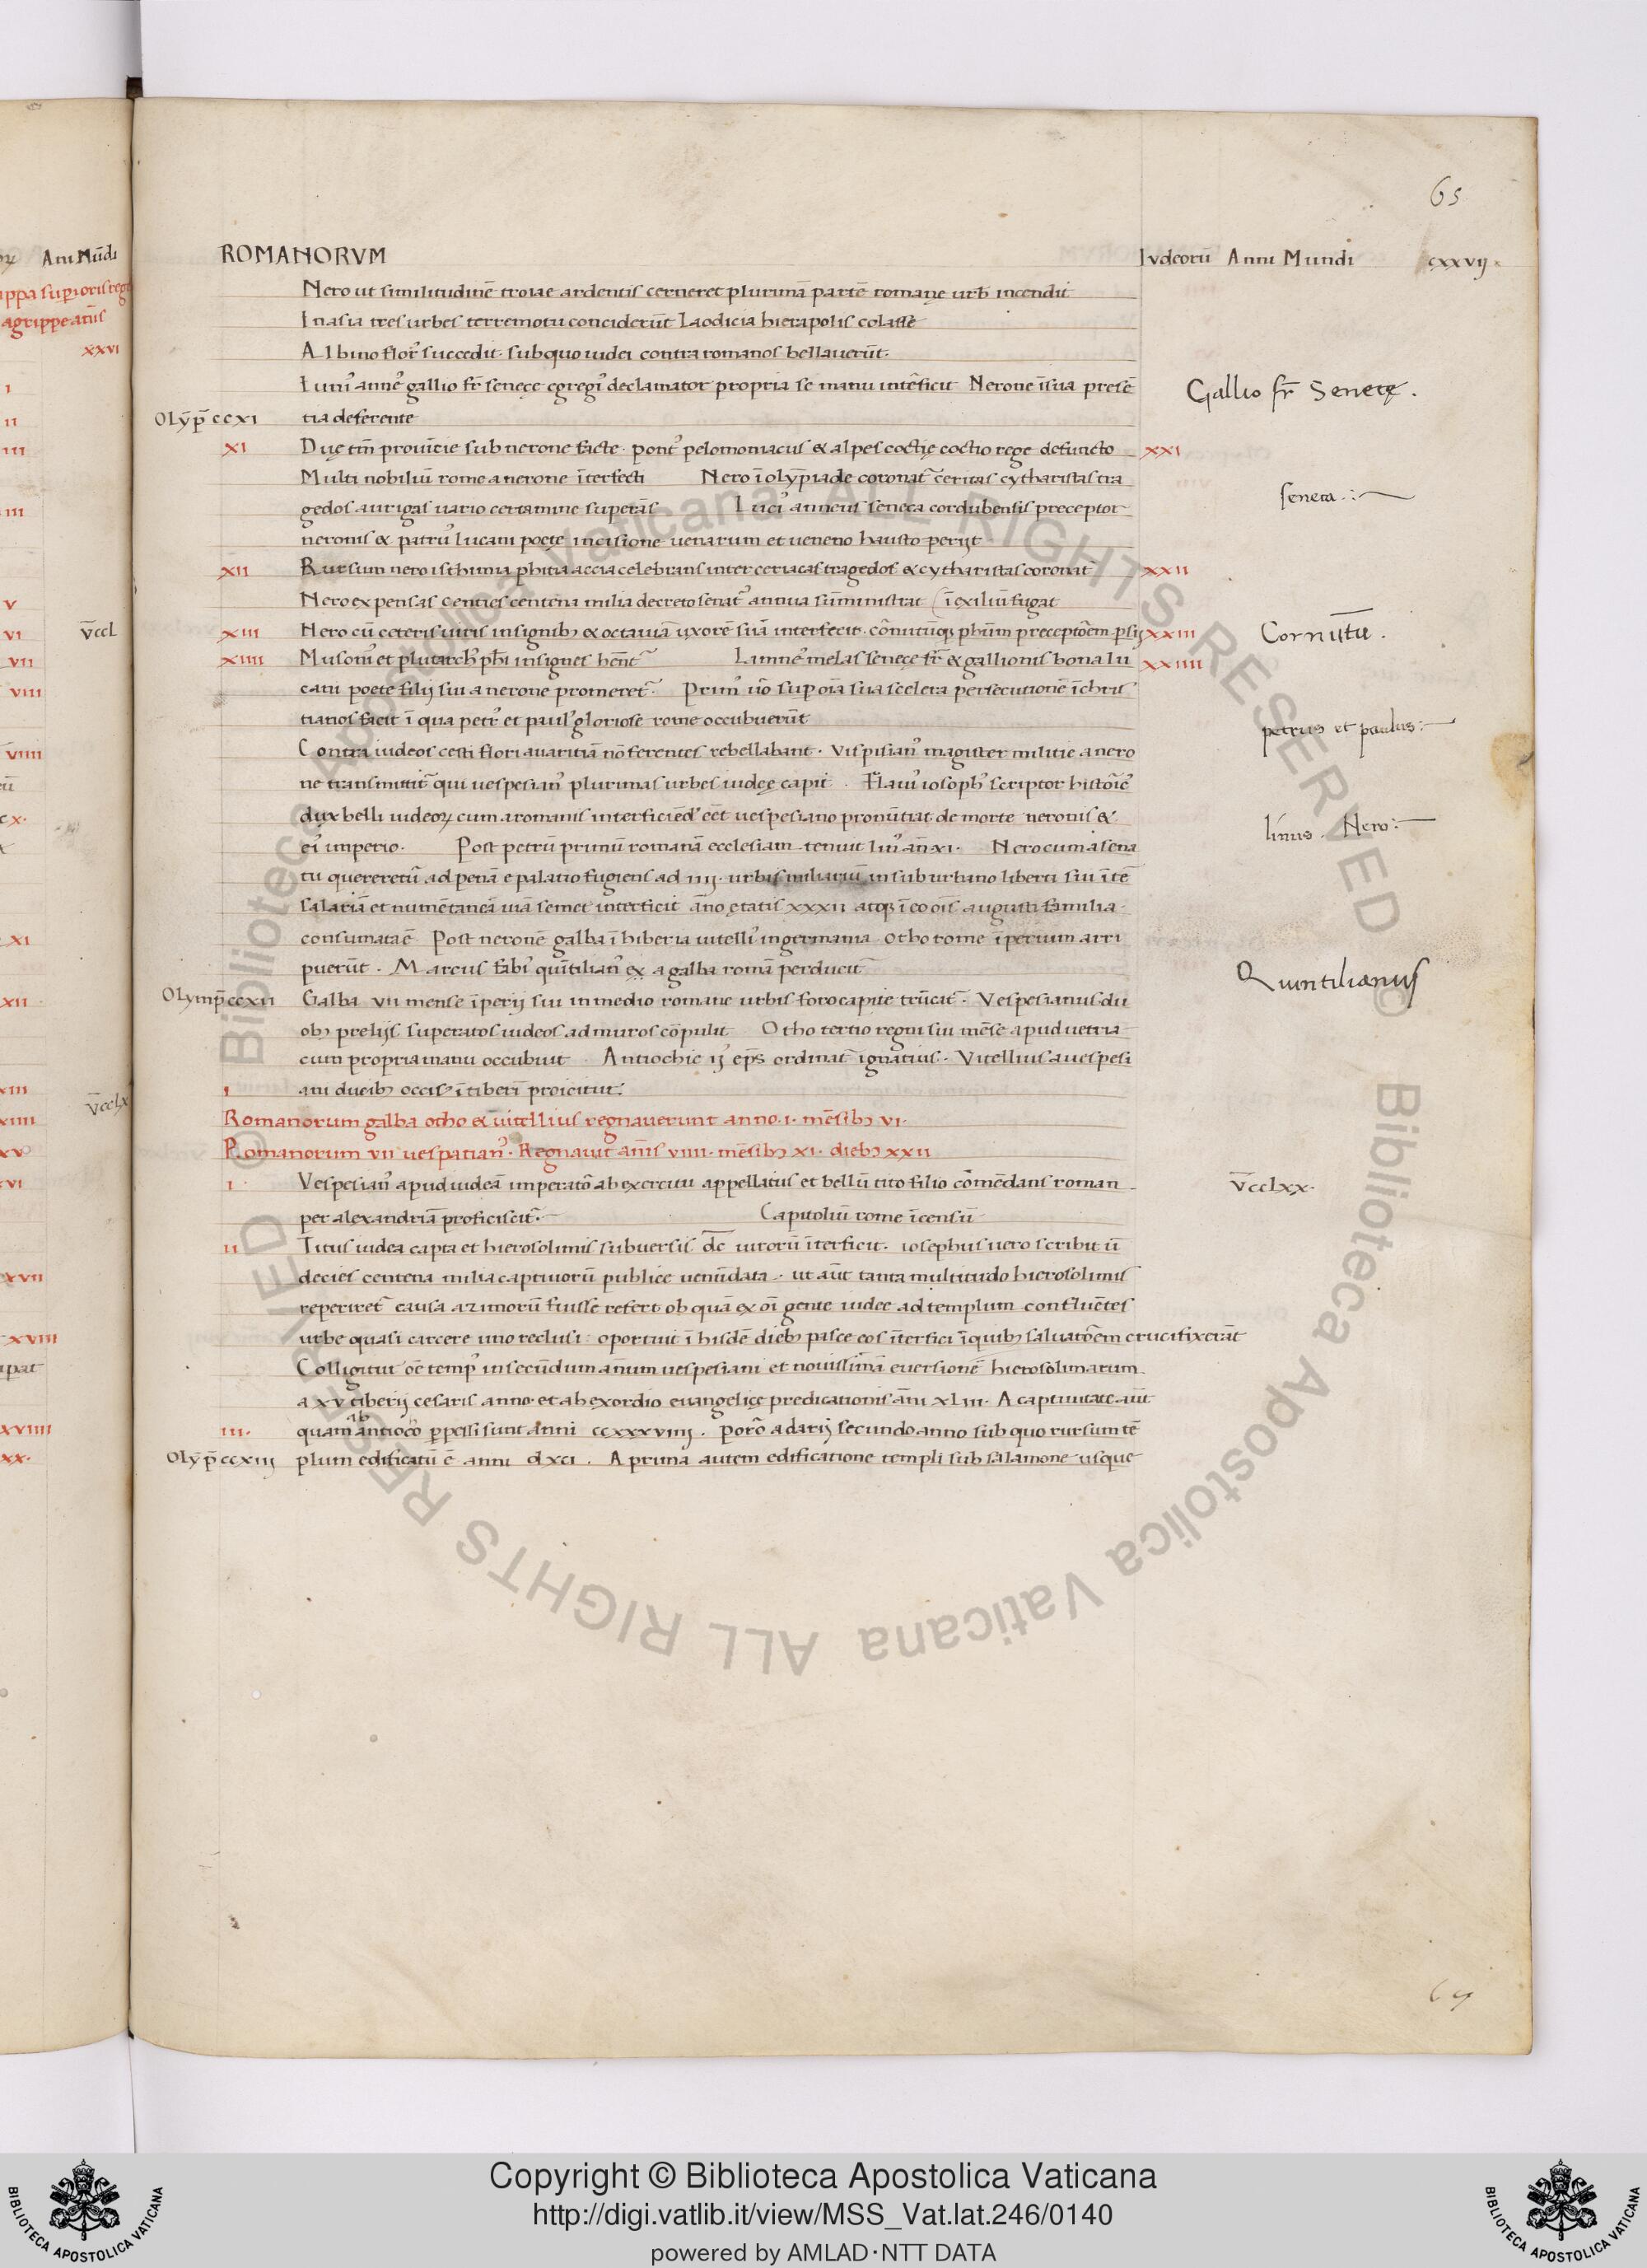 65
ROMANORVM Iudeorū Anni Mundi cxxvij
Nero ut similitudinē troiae ardentis cerneret plurimā partē romanę urb̄ incendit
In asia tres urbes terremotu conciderūt Laodicia hierapolis colasse
Albino florꝰ succedit. sub quo iudei contra romanos bellauerūt.
Iuniꝰ anneꝰ gallio fr̄ senece egregiꝰ declamator propria se manu intēficit Nerone ī sua presē
Gallio fr̄ Senecę.
Olȳp̄ ccxi tia deferente
xi Duę tm̄ prouīcie sub nerone facte. pontꝰ pelomoniacus & alpes coctię coctio rege defuncto xxi
Multi nobiliū rome a nerone īterfecti Nero ī olȳpiade coronat᷑ cericas cytharistas tra
gedos aurigas uario certamine superās Luciꝰ anneus seneca cordubensis preceptor
seneca
neronis & patruꝰ lucani poetę incisione uenarum et ueneno hausto perijt
xii Rursum nero isthimia phitia accia celebrans inter ceriacas tragedos & cytharistas coronat᷑ xxii
Nero expensas centies centena milia decreto senatꝰ annua sūministrat ī exiliū fugat
xiii Nero cū ceteris uiris insignibꝫ & octauiā uxorē suā interfecit. cōrnutūqꝫ ph̄um preceptōem psij xxiii
Cornutū.
xiiii Musoniꝰ et plutarchꝰ ph̄i insignes hn̄t᷑ L anneꝰ melas senece fr̄ & gallionis bona lu xxiiii
cani poete filij sui a nerone promeret᷑. Primꝰ ūo sup oīa sua scelera persecutionē ī chris
tianos facit ī qua petrꝰ et paulꝰ gloriose rome occubuerūt
petrus et paulus
Contra iudeos cesti flori auaritiā nō ferentes rebellabant. Vispisianꝰ magister militie a nero
ne transmittit᷑ qui uespesianꝰ plurimas urbes iudeę capit. Flauiꝰ iosophꝰ scriptor historieꝰ
dux belli iudeoꝝ cum a romanis interficiēdꝰ eēt uespesiano pronūtiat de morte neronis &
linus. Nero
eiꝰ imperio. Post petrū primū romanā ecclesiam tenuit linꝰ an̄ xi. Nero cum a sena
tu quereretū ad penā e palatio fugiens ad iiij. urbis miliariū in suburbano liberti sui īte
salariā et numētaneā uiā semet interficit āno ętatis xxxii atqꝫ ī eo oīs augusti familia
consumata ē Post neronē galba ī hiberia uitelliꝰ in germania otho rome īperium arri
puerūt. Marcus fabiꝰ quītilianꝰ ex a galba romā perducit᷑
Quintilianus
Olymp̄ ccxii Galba vii mense īperij sui in medio romane urbis foro capite trūcat᷑. Vespesianus du
obꝫ prelijs superatos iudeos ad muros cōpulit Otho tertio regni sui mēse apud uetria
cum propria manu occubuit Antiochie ijꝰ ep̄s ordinat᷑ ignatius. Vitellius a uespesi
i ani ducibꝫ occisꝰ ī tiberī proicitur.
Romanorum galba otho & uitellius regnauerunt anno. i. mēsibꝫ vi.
Romanorum vii uespatianꝰ. Regnauit an̄is viiii. mēsibꝫ xi. diebꝫ xxii
i Vespesianꝰ apud iudeā imperatō ab exercitu appellatus et bellū tito filio cōmēdans roman
v̄cclxx.
per alexandriā proficiscit᷑. Capitoliū rome īcensū
ii Titus iudea capta et hierosolimis subuersis dc̄ uirorū īterficit. iosephus uero scribit ū
decies centena milia captiuorū publice uenūdata. ut aūt tanta multitudo hierosolimis
reperiret᷑ causa azimorū fuisse refert ob quā ex oī gente iudee ad templum confluētes
urbe quasi carcere uno reclusi. oportuit ī hisdē diebꝫ pasce eos īterfici ī quibꝫ saluatōem crucifixerāt
Colligitur oē tempꝰ in secūdum annum uespesiani et nouissimā euersionē hierosolimarum
a xv tiberij cesaris anno. et ab exordio euangelicę predicationis an̄i xliii. A captiuitate aūt
iii. quam ab antioco perpessi sunt anni ccxxxviiij. porō a darij secundo anno sub quo rursum tē
Olȳp̄ ccxiij plum edificatū ē anni dxci. A prima autem edificatione templi sub salamone usque
Ani Mūdi
xxvi
v̄ccl
v̄cclx
Copyright © Biblioteca Apostolica Vaticana
http://digi.vatlib.it/view/MSS_Vat.lat.246/0140
powered by AMLAD·NTT DATA
BIBLIOTECA APOSTOLICA VATICANA
BIBLIOTECA APOSTOLICA VATICANA
© Biblioteca Apostolica Vaticana ALL RIGHTS RESERVED
© Biblioteca Apostolica Vaticana ALL RIGHTS RESERVED